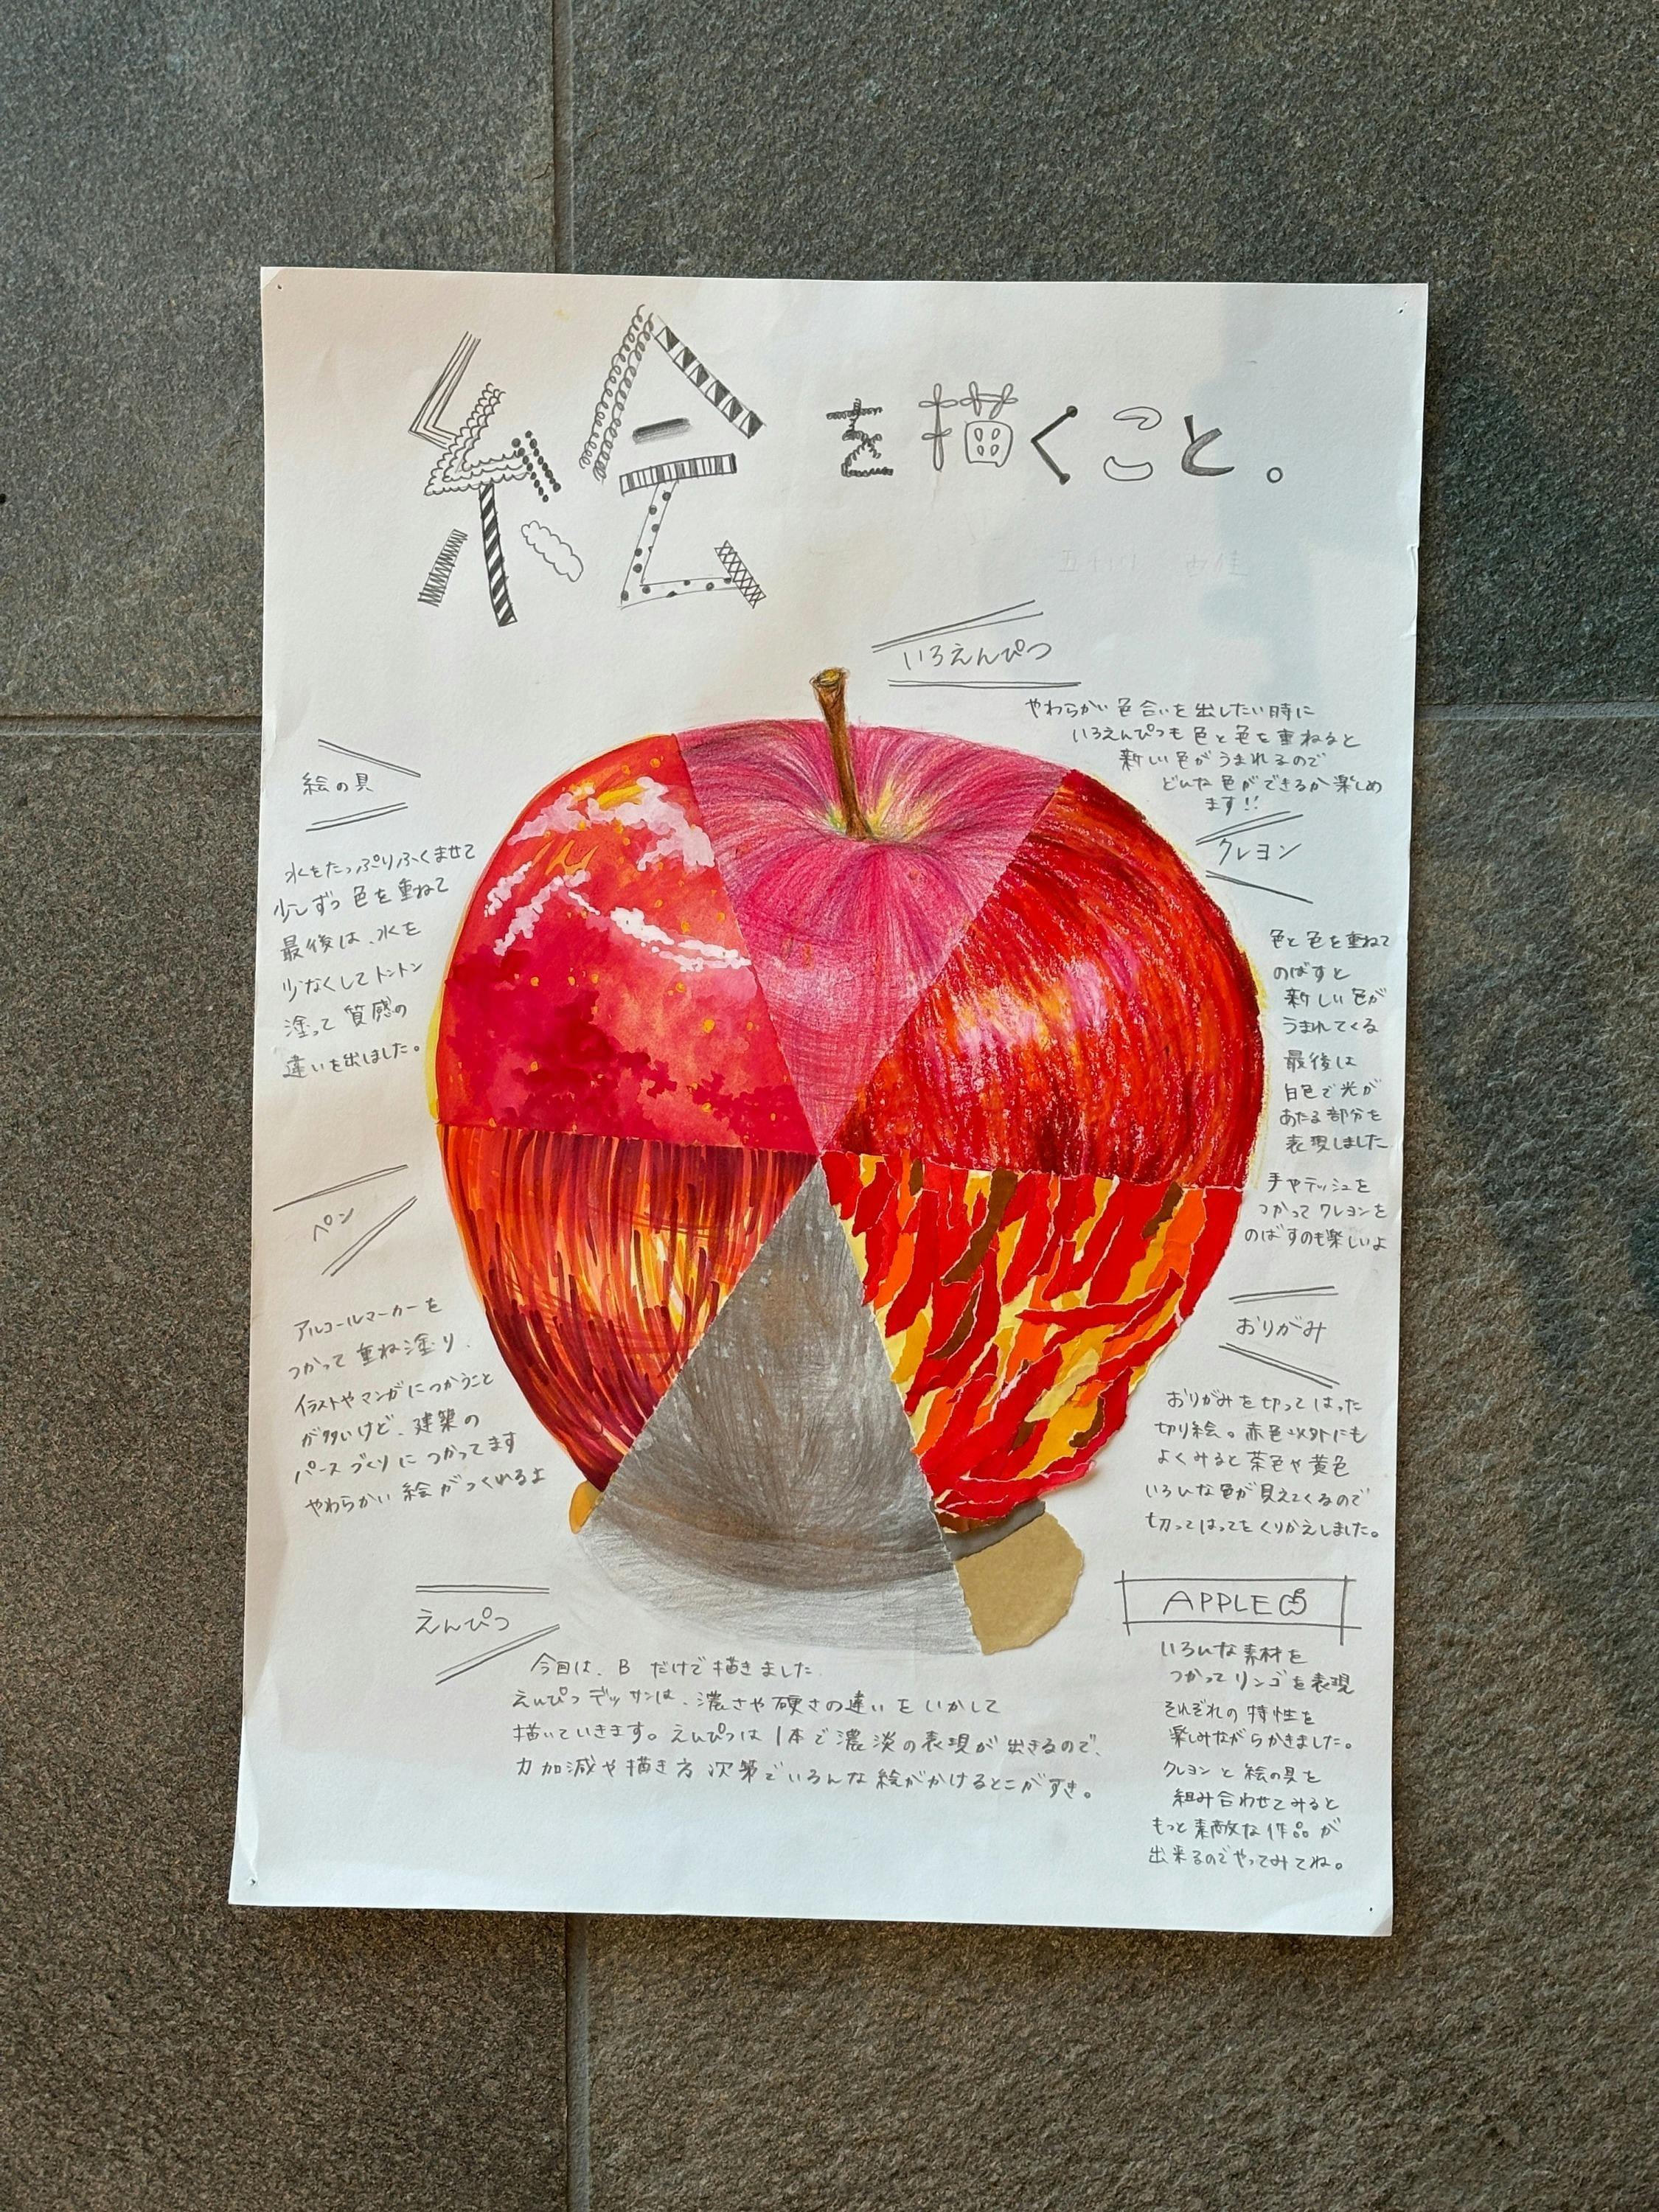 絵を描くこと。
いろえんぴつ
やわらかい色合いを出したい時に
いろえんぴつも色と色を重ねると
新しい色がうまれるので
どんな色ができるか楽しめ
ます!!
絵の具
水をたっぷりふくませて
少しずつ色を重ねて
最後は、水を
少なくしてトントン
塗って質感の
違いを出しました。
クレヨン
色と色を重ねて
のばすと
新しい色が
うまれてくる
最後は
白色で光が
あたる部分を
表現しました
手やティッシュを
つかってクレヨンを
のばすのも楽しいよ
ペン
アルコールマーカーを
つかって重ね塗り.
イラストやマンガにつかうこと
が多いけど、建築の
パースづくりにつかってます
やわらかい絵がつくれるよ
おりがみ
おりがみを切ってはった
切り絵。赤色以外にも
よくみると茶色や黄色
いろいんな色が見えてくるので
切ってはってをくりかえしました。
えんぴつ
今回は、Bだけで描きました.
えんぴつデッサンは、濃さや硬さの違いをいかして
描いていきます。えんぴつは1本で濃淡の表現が出きるので、
力加減や描き方次第でいろんな絵がかけるとこがすき。
APPLE
いろんな素材を
つかってリンゴを表現
それぞれの特性を
楽しみながらかきました。
クレヨンと絵の具を
組み合わせてみると
もっと素敵な作品が
出来るのでやってみてね。